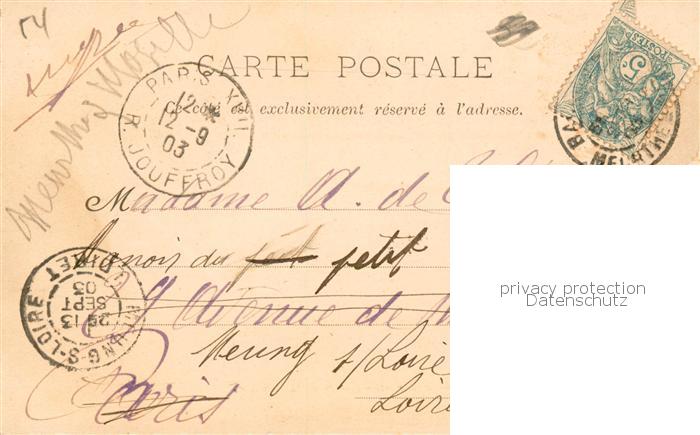 CARTE POSTALE
Ce côté est exclusivement réservé à l'adresse.
PARIS XVII
12
12 -9
03
R. JOUFFROY
POSTES
5
MEURTHE
Meurthe & Moselle
Madame A. de
Manoir du petit
Avenue de
Meung s/Loire
Paris
Loire
MEUNG-S-LOIRE
2E 13
SEPT
03
LOIRET
privacy protection
Datenschutz